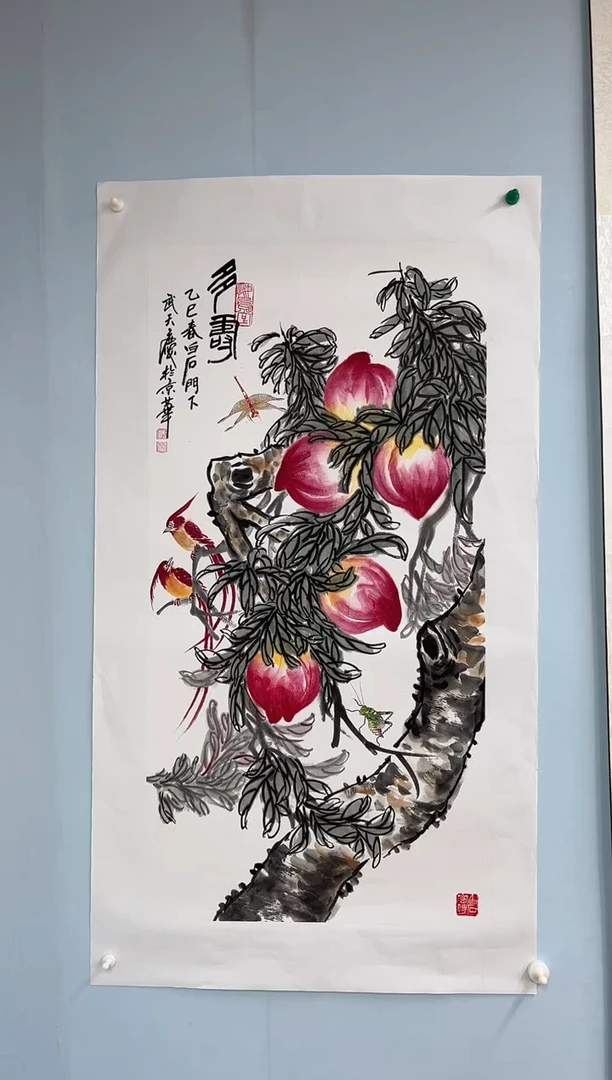 多寿
乙巳春白石門下
武天慶於京華